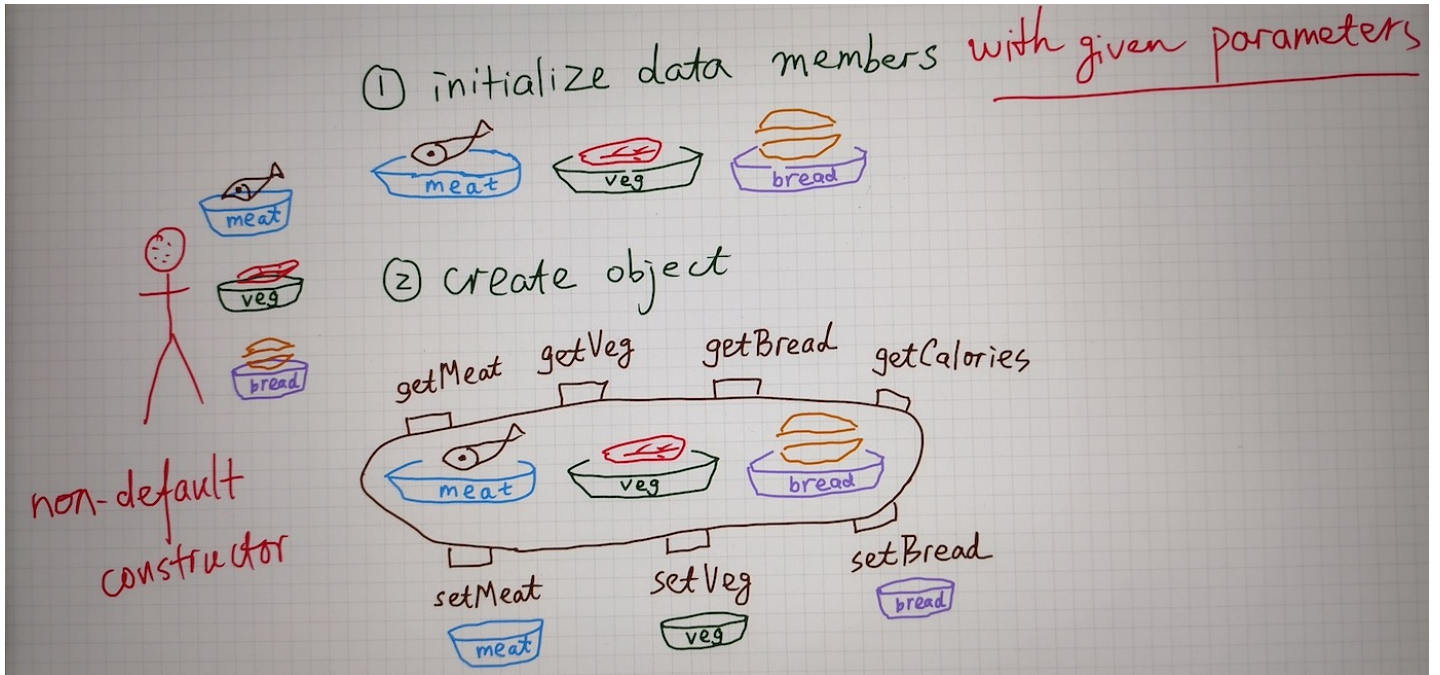 ① initialize data members with given parameters
meat veg bread
meat
veg
bread
② create object
getMeat getVeg getBread getCalories
meat veg bread
non-default
constructor
setMeat setVeg setBread
meat veg bread